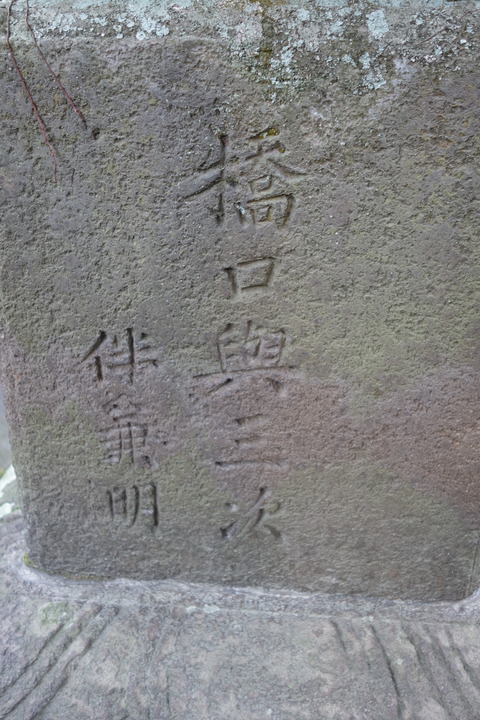 橋口與三次
伴兼明